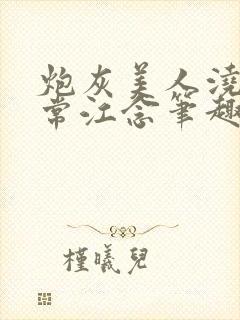 炮灰美人浇
常江念笔趣
槿曦兒